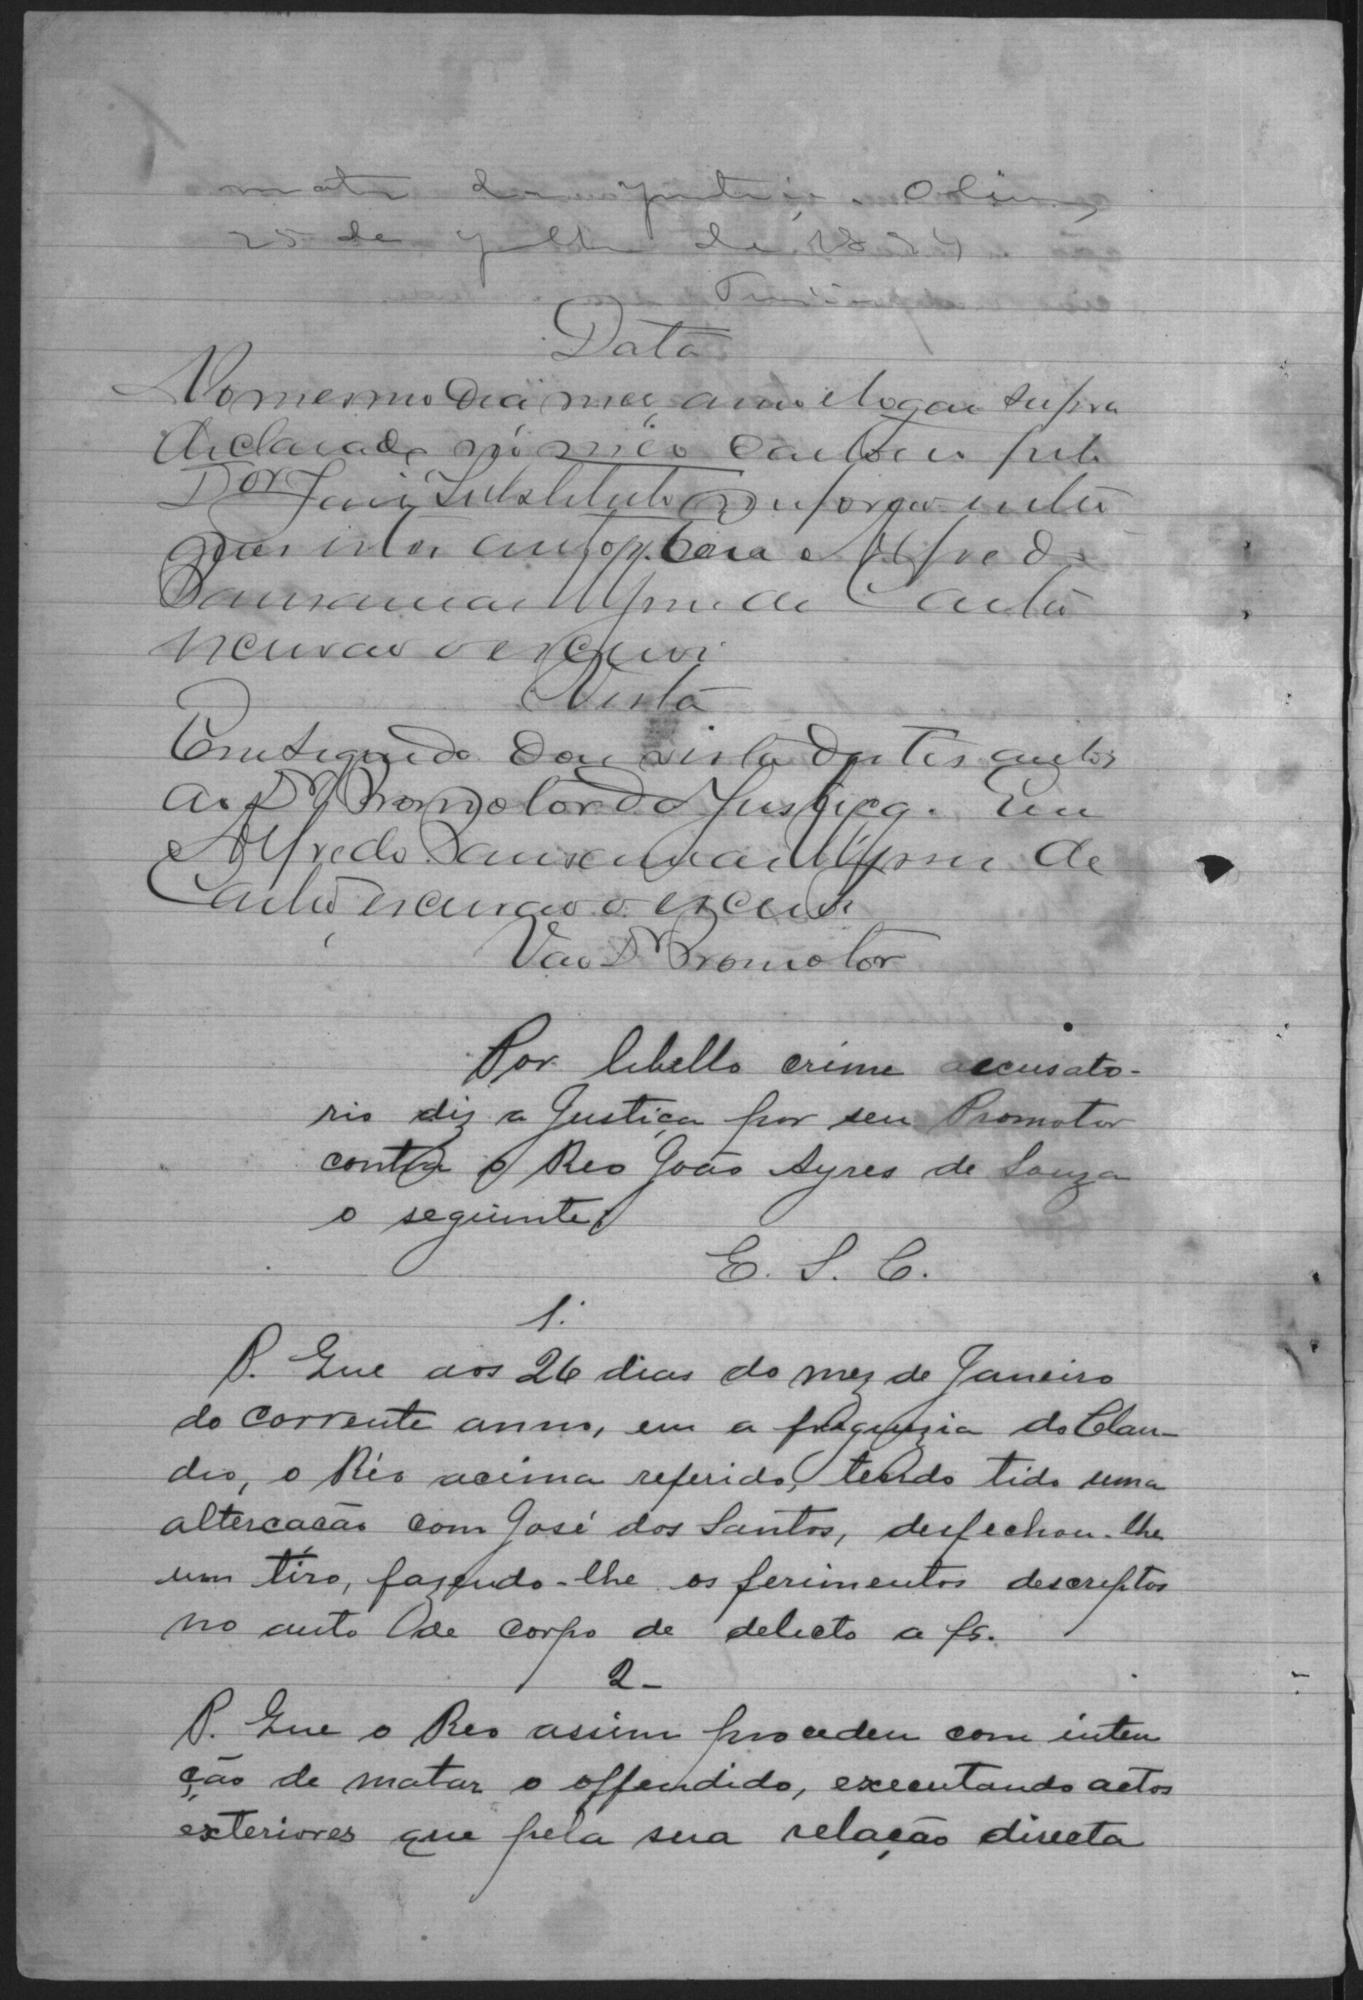 25 de julho de 18
Data
No mesmo dia mez anno e logar supra
declarado
Dor Juiz Substituto me foram entre
gues estes autos, para Alfredo
de Castro
escrivão o escrevi
Vista
Em seguida dou vista destes autos
ao Dr Promotor da Justiça. Eu
Alfredo de
Castro escrivão o escrevi
Vao Dr Promotor
Por libello crime accusato-
rio diz a Justiça por seu Promotor
contra o Reo João Ayres de Souza
o seguinte,
E. S. C.
1.
P. Que aos 26 dias do mez de Janeiro
do corrente anno, em a freguezia do Clau-
dio, o Réo acima referido, tendo tido uma
altercação com José dos Santos, desfechou-lhe
um tiro, fazendo-lhe os ferimentos descriptos
no auto de corpo de delicto a fs.
2-
P. Que o Reo assim procedeu com inten
ção de matar o offendido, executando actos
exteriores que pela sua relação directa